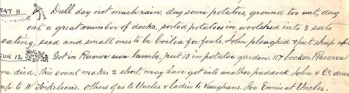 SAT 11 Dull day not much rain, dug some potatoes, ground too wet, dug
out a great number of docks, sorted potatoes in woolshed into 3 sorts
eating, seed and small ones to be boiled for fowls. John ploughed & put sheep
SUN 12 Got in Reserve ewe lambs, put 13 in potatoe garden, 117 back in Reserve
one died, this count makes 2 short, may have got into another paddock John &
up to W. to Uncles & ladies to Vaughans. Mr Ennis at Uncles.